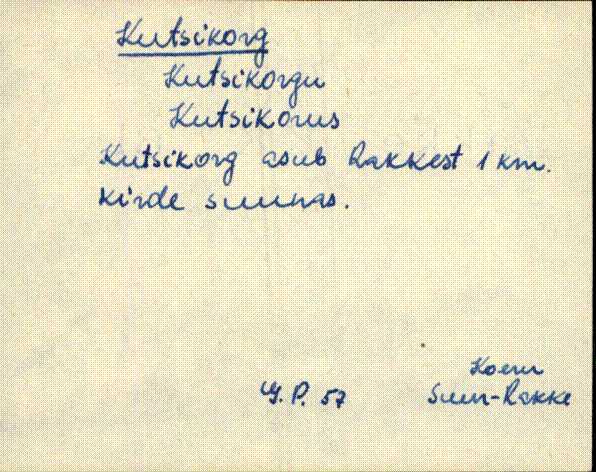 Kutsikorg
Kutsikorgu
Kutsikorus
Kutsikorg asub Rakkest 1 km.
kirde suunas.
Koeru
Y. P. 57 Suur-Rakke